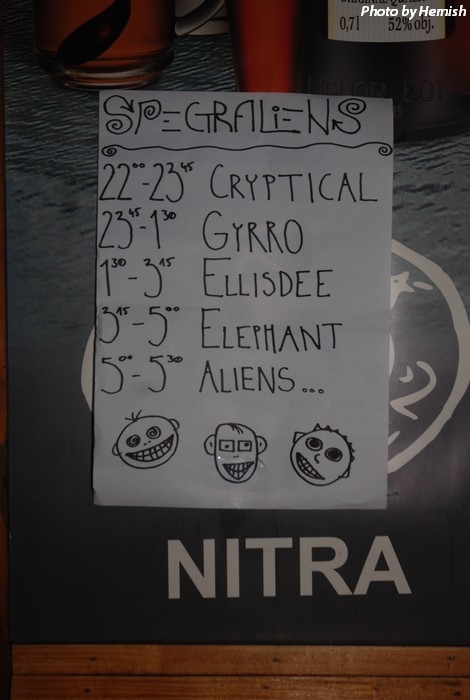 Photo by Hemish
0,7l 52% obj.
LIQUOR BOT
SPEGRALIENS
22⁰⁰-23⁴⁵ CRYPTICAL
23⁴⁵-1³⁰ GYRRO
1³⁰-3¹⁵ ELLISDEE
3¹⁵-5⁰⁰ ELEPHANT
5⁰⁰-5³⁰ ALIENS...
NITRA